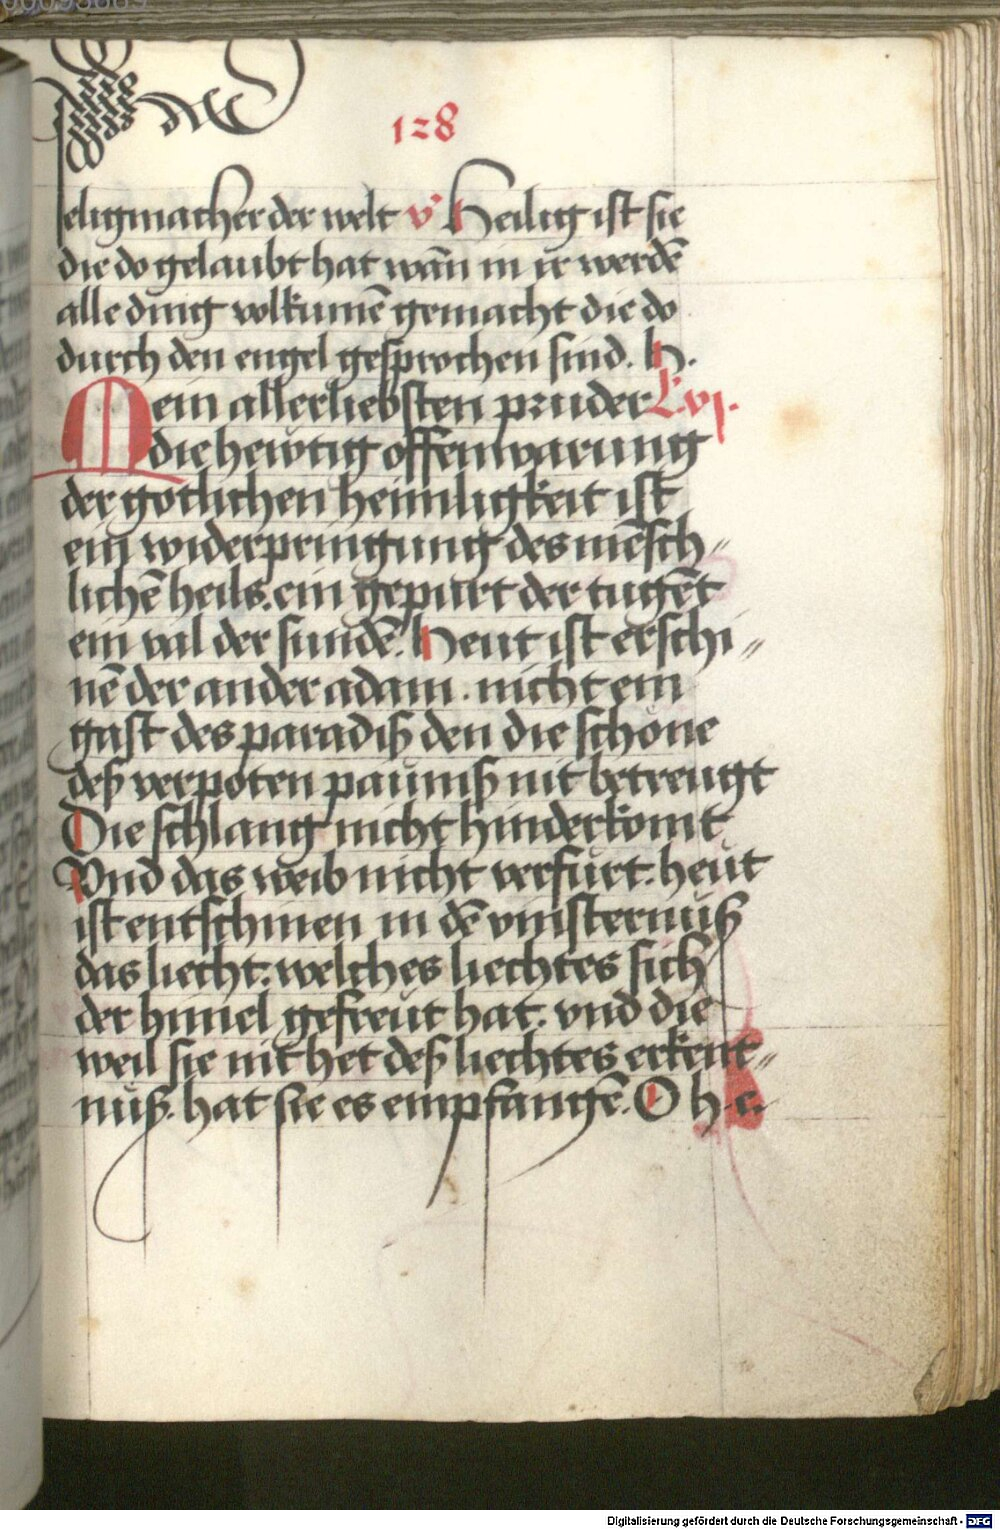 128
seligmacher der welt v᷒ Heilig ist sie
die do gelaubt hat wan̄ in ir werdē
alle ding volkumē gemacht die do
durch den engel gesprochen sind. H.
Mein allerliebsten pruder L̄vj.
die hewtig offenwarung
der gotlichen heimligkeit ist
ein widerpringung des mēsch〃
lichē heils. ein gepurt der tugēt
ein val der sundē. Heut ist erschi〃
nē der ander adam. nicht ein
gast des paradiß den die schöne
deß verpoten paumß nit betreugt
Die schlang nicht hinderkomt
Vnd das weib nicht verfürt. heut
ist entschinen in dē vinsternuß
das liecht. welches liechtes sich
der himel gefreut hat. vnd die
weil sie nit het deß liechtes erkent〃
nuß. hat sie es empfangē. O h. e.
Digitalisierung gefördert durch die Deutsche Forschungsgemeinschaft - DFG